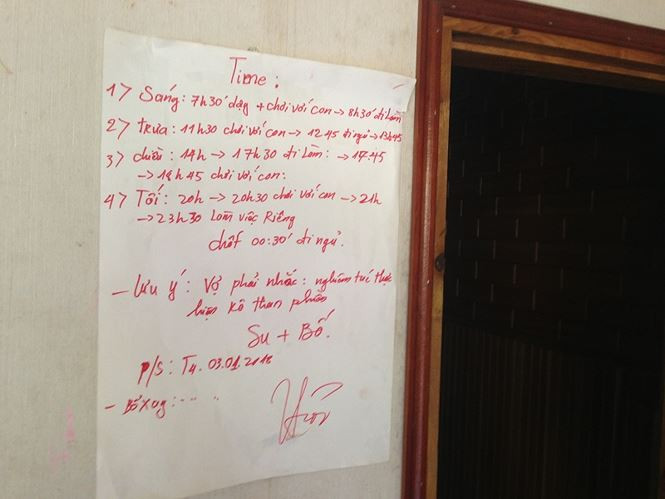 Time:
1> Sáng: 7h30' dạy + chơi với con → 8h30' đi làm
2> trưa: 11h30 chơi với con → 12 45 đi ngủ → 13h45
3> chiều: 14h → 17h30 đi làm: → 17:45
→ 18h45 chơi với con:
4> Tối: 20h → 20h30 chơi với con → 21h
→ 23h30 Làm việc Riêng
chốt 00:30' đi ngủ.
- Lưu ý: Vợ phải nhắc: nghiêm túc thực
hiện kô than phiền
Su + Bố.
P/S: T4. 03.01.2018
- Bổ xung: ...